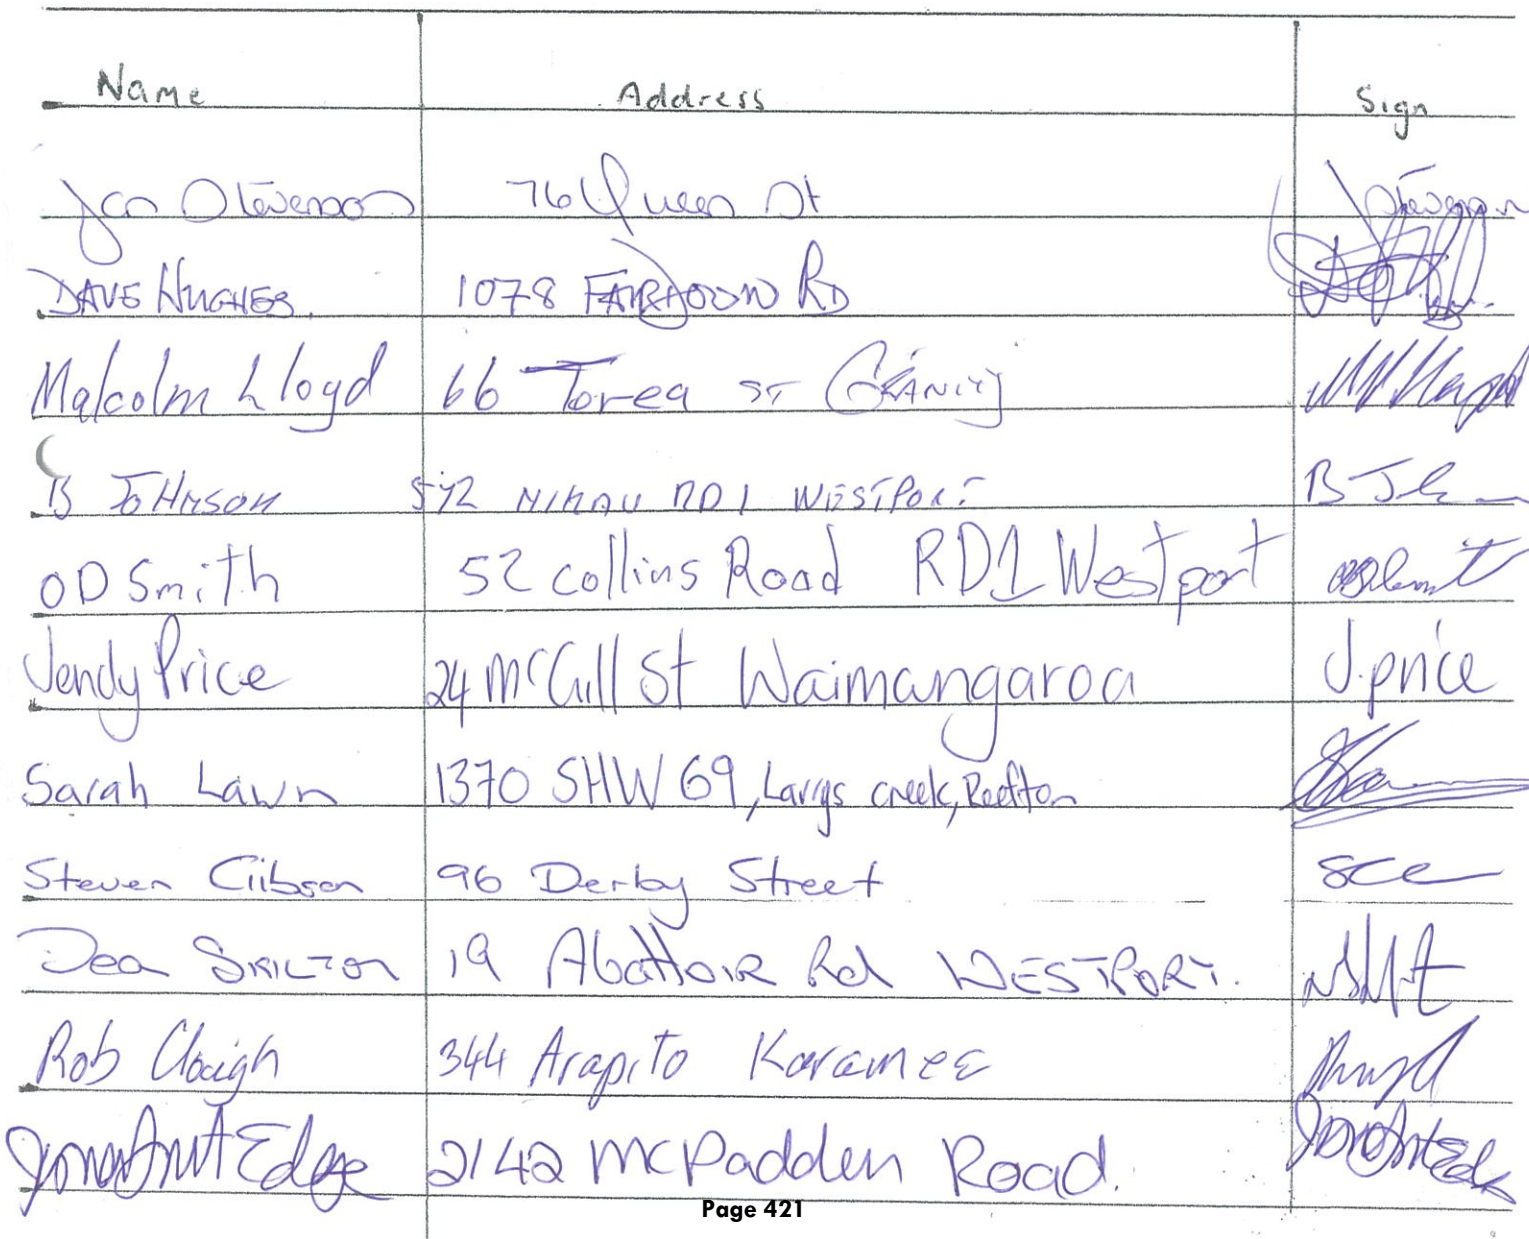 Name Address Sign
Jan Stevenson 76 Queen St JStevenson
DAVE HUGHES. 1078 FAIRDOWN RD
Malcolm Lloyd 66 Torea ST GRANITY
B JOHNSON 572 NIKAU RD1 WESTPORT B Joh
OD Smith 52 collins Road RD1 Westport
Jendy Price 24 McGill St Waimangaroa J.price
Sarah Lawn 1370 SHW 69, Larrys creek, Reefton
Steven Gibson 96 Derby Street
Dea SKILTON 19 Abattoir Rd WESTPORT.
Rob Clough 344 Arapito Karamea
Edge 2142 McPadden Road.
Page 421